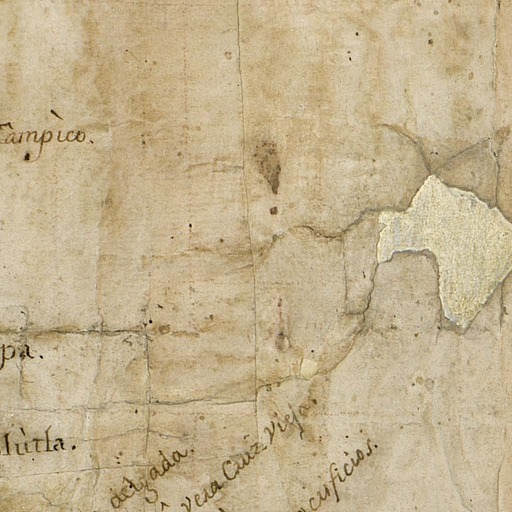 Tampìco.
pa.
lùtla.
delgada.
Vera Cruz Vieja.
crificios.